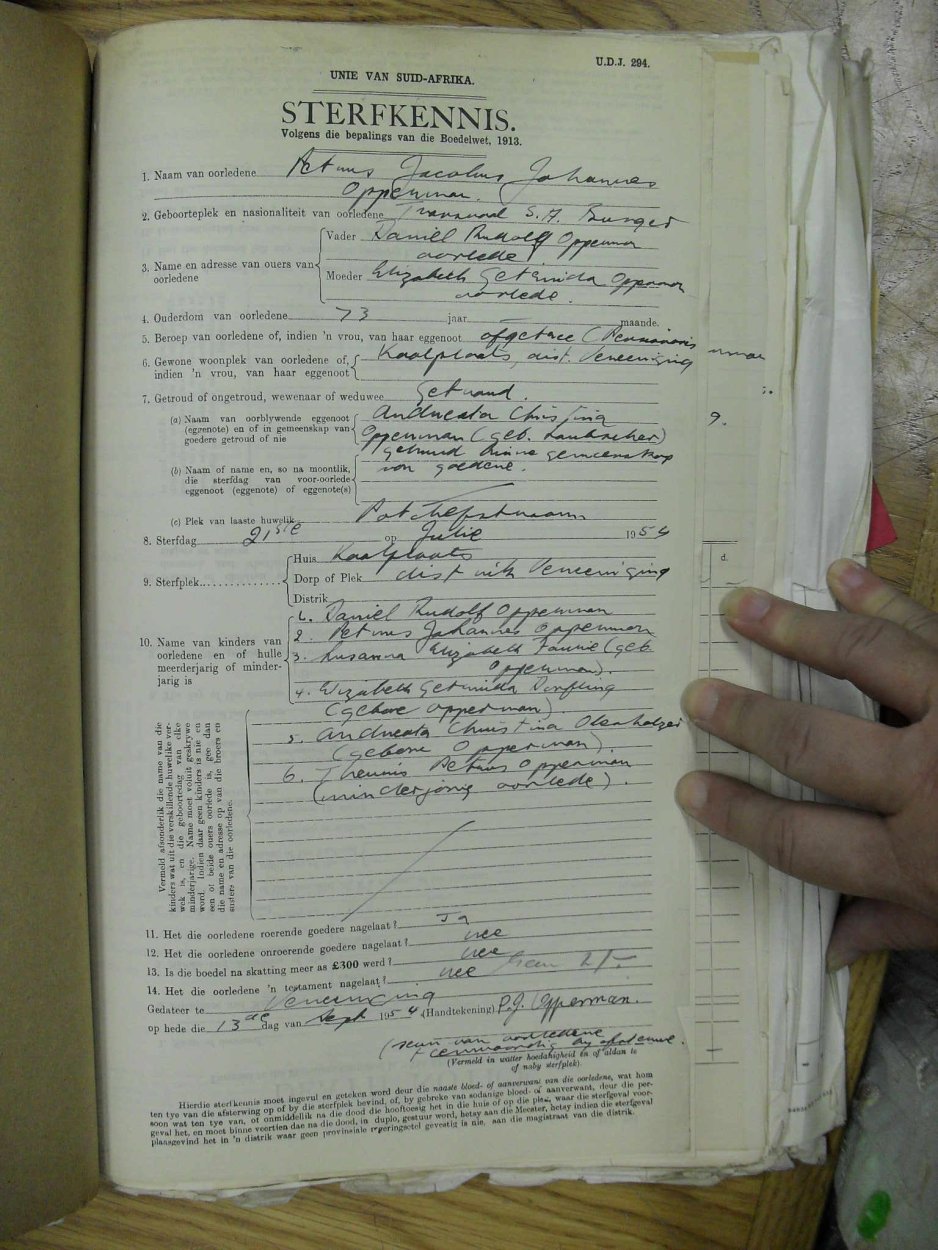 U.D.J. 294.
UNIE VAN SUID-AFRIKA.
STERFKENNIS.
Volgens die bepalings van die Boedelwet, 1913.
1. Naam van oorledene Petrus Jacobus Johannes
Opperman.
2. Geboorteplek en nasionaliteit van oorledene Transvaal S.A. Burger
3. Name en adresse van ouers van oorledene
Vader Daniël Rudolf Opperman
oorlede
Moeder Elizabeth Gertruida Opperman
oorlede.
4. Ouderdom van oorledene 73 jaar — maande.
5. Beroep van oorledene of, indien 'n vrou, van haar eggenoot afgetree (Pensionaris
6. Gewone woonplek van oorledene of, indien 'n vrou, van haar eggenoot Kaalplaats, dist. Vereeniging
7. Getroud of ongetroud, wewenaar of weduwee Getroud.
(a) Naam van oorblywende eggenoot (eggenote) en of in gemeenskap van goedere getroud of nie
Christina
Opperman (geb. Laubscher)
getroud binne gemeenskap
van goedere.
(b) Naam of name en, so na moontlik, die sterfdag van voor-oorlede eggenoot (eggenote) of eggenote(s)
(c) Plek van laaste huwelik Potchefstroom
8. Sterfdag 21ste op Julie 1954
9. Sterfplek
Huis Kaalplaats
Dorp of Plek distrik Vereeniging
Distrik
10. Name van kinders van oorledene en of hulle meerderjarig of minderjarig is
1. Daniël Rudolf Opperman
2. Petrus Johannes Opperman
3. Susanna Elizabeth Fourie (geb.
Opperman).
4. Elizabeth Gertruida Dorfling
(gebore Opperman).
5. Christina
(gebore Opperman).
6. Theunis Petrus Opperman
(minderjarig oorlede).
Vermeld afsonderlik die name van die kinders wat uit die verskillende huwelike verwek is, en die geboortedag van elke minderjarige. Name moet voluit geskrywe word. Indien daar geen kinders is nie en een of beide ouers oorlede is, gee dan die name en adresse op van die broers en susters van die oorledene.
11. Het die oorledene roerende goedere nagelaat? Ja
12. Het die oorledene onroerende goedere nagelaat? nee
13. Is die boedel na skatting meer as £300 werd? nee
14. Het die oorledene 'n testament nagelaat? nee
Gedateer te Vereeniging
op hede die 13de dag van Sept 1954. (Handtekening) P.J. Opperman.
(seun van oorledene
+ teenwoordig by afsterwe.
(Vermeld in watter hoedanigheid en of aldan te of naby sterfplek).
Hierdie sterfkennis moet ingevul en geteken word deur die naaste bloed- of aanverwant van die oorledene, wat hom
ten tye van die afsterwing op of by die sterfplek bevind, of, by gebreke van sodanige bloed- of aanverwant, deur die per-
soon wat ten tye van, of onmiddellik na die dood die hooftoesig het in die huis of op die plek, waar die sterfgeval voor-
geval het, en moet binne veertien dae na die dood, in duplo, gestuur word, hetsy aan die Meester, hetsy indien die sterfgeval
plaasgevind het in 'n distrik waar geen provinsiale regeringsetel gevestig is nie, aan die magistraat van die distrik.
9.
d.